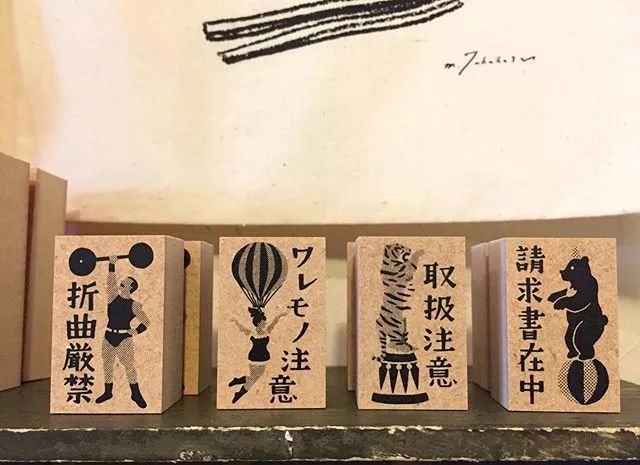 m. Takahashi
折曲厳禁
ワレモノ注意
取扱注意
請求書在中